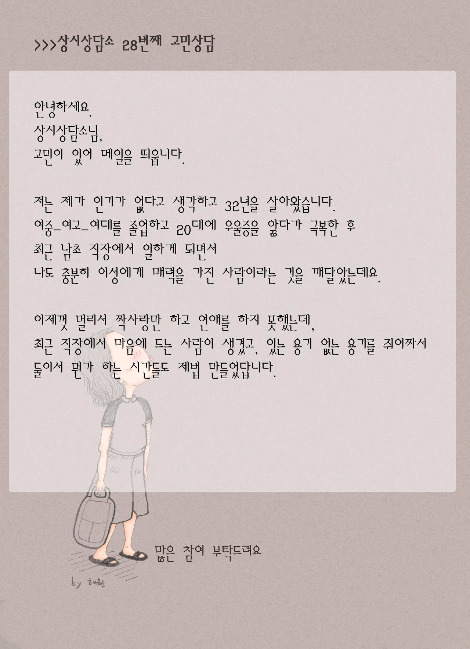 >>>상시상담소 28번째 고민상담
안녕하세요.
상시상담소님,
고민이 있어 메일을 띄웁니다.
저는 제가 인기가 없다고 생각하고 32년을 살아왔습니다.
여중-여고-여대를 졸업하고 20대에 우울증을 앓다가 극복한 후
최근 남초 직장에서 일하게 되면서
나도 충분히 이성에게 매력을 가진 사람이라는 것을 깨달았는데요.
이제껏 멀리서 짝사랑만 하고 연애를 하지 못했는데,
최근 직장에서 마음에 드는 사람이 생겼고, 있는 용기 없는 용기를 쥐어짜서
둘이서 뭔가 하는 시간들도 제법 만들었답니다.
많은 참여 부탁드려요
by 해원